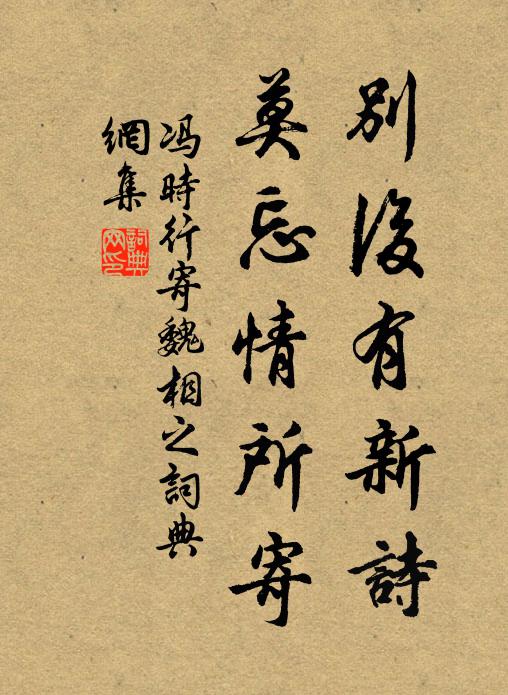 别後有新詩
莫忘情所寄
冯時行寄魏相之詞典
網集
詞典網印